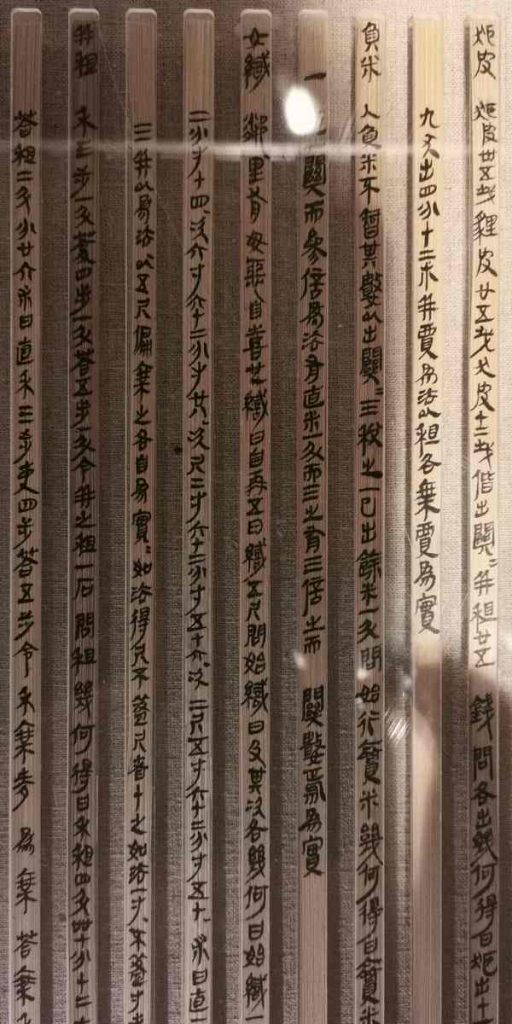 狐皮 狐皮卅五𢦏貍皮廿五𢦏犬皮十二𢦏偕出關=并租廿五錢問各出幾何得曰狐出十
九犬出四分十二术并賈為法以租各乘賈為實
負米 人負米不智其數以出關=三稅之一已出餘米一斗問始行齎米幾何得曰齎米
一關而參倍為法有直米一斗而三之有三倍之而關數焉為實
女織 鄰里有女惡自喜也織曰自再五日織五尺問始織日及其次各幾何曰始織一
二分寸十四次六寸六十二分寸廿次尺二寸六十二分寸五十六次二尺五寸六十二分寸五十术曰直
三并以為法以五尺偏乘之各自為實=如法得尺不盈尺者十之如法一寸不盈寸者
并租 禾三步一斗麥四步一斗荅五步一斗今并之租一石問租幾何得曰禾租四斗卌十分十二
荅租二斗分廿六术曰直禾三步麥四步荅五步令禾乘麥為乘荅乘